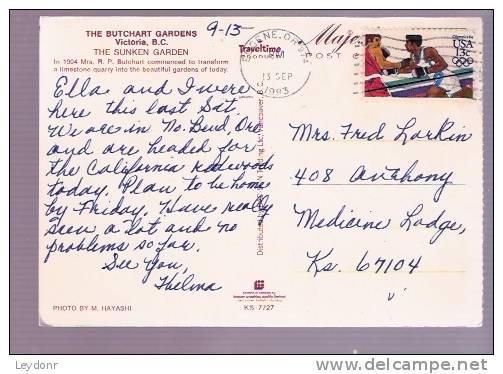 THE BUTCHART GARDENS
Victoria, B.C.
THE SUNKEN GARDEN
In 1904 Mrs. R. P. Butchart commenced to transform
a limestone quarry into the beautiful gardens of today.
9-13
Ella and I were
here this last Sat
We are in No. Bend, Ore
and are headed for
the California redwoods
today. Plan to be home
by Friday. Have really
seen a lot and no
problems so far.
See You,
Thelma
PHOTO BY M. HAYASHI
Traveltime
PM
13 SEP
1983
POST
USA
13c
Mrs. Fred Larkin
408 Anthony
Medicine Lodge,
Ks. 67104
KS-7727
Leydonr
delcampe.net